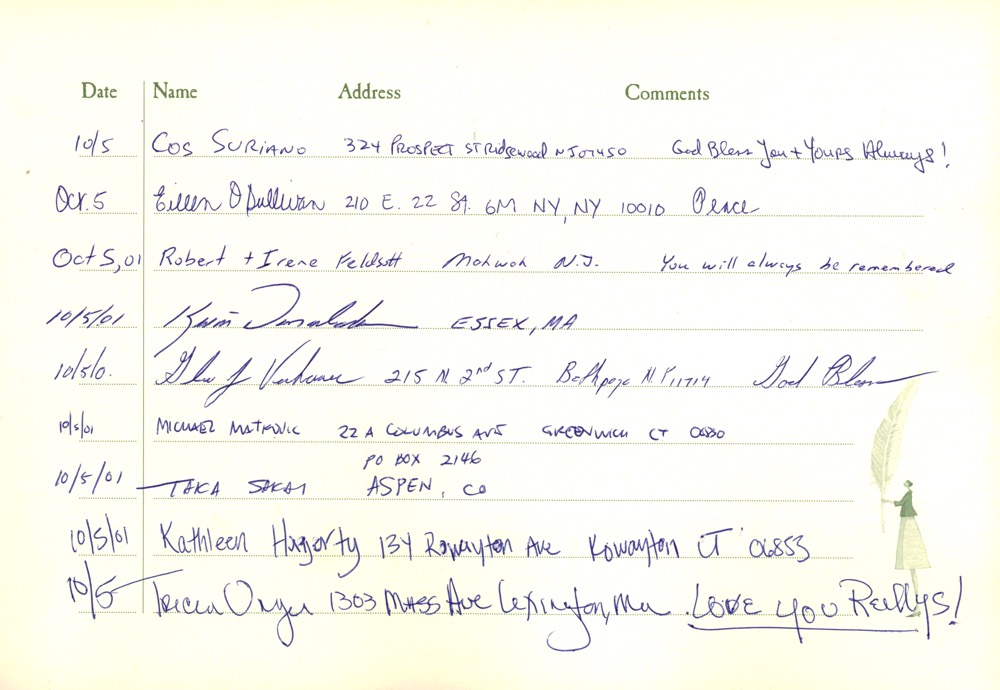 Date Name Address Comments
10/5 Cos Suriano 324 Prospect St Ridgewood NJ 07450 God Bless You + Yours Always!
Oct. 5 Eileen O'Sullivan 210 E. 22 St. 6M NY, NY 10010 Peace
Oct 5, 01 Robert + Irene Feldsott Mahwah N.J. You will always be remembered
10/5/01 Kevin ESSEX, MA
10/5/0. 215 N. 2nd ST. Bethpage N.Y 11714 God Bless
10/5/01 MICHAEL MATKOVIC 22 A COLUMBUS AVE GREENWICH CT
PO BOX 2146
10/5/01 TAKA SAKAI ASPEN, CO
10/5/01 Kathleen Hagerty 134 Rowayton Ave Rowayton CT 06853
10/5 Tricia 1303 Mass Ave Lexington, Ma LOVE you Reillys!